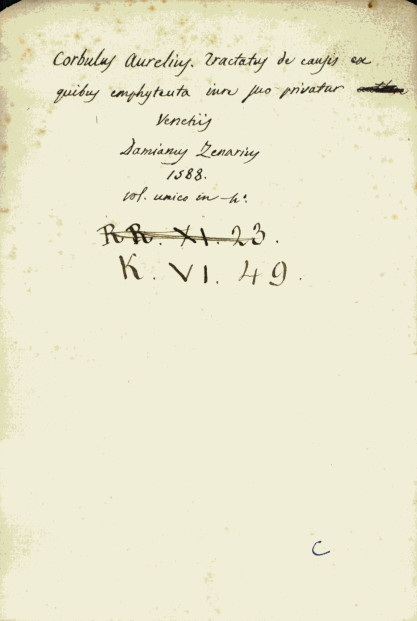 Corbulus Aurelius. Tractatus de causis ex
quibus emphyteuta iure suo privatur
Venetiis
Damianus Zenarius
1588.
vol. unico in-4º.
RR. XI. 23.
K. VI. 49.
C